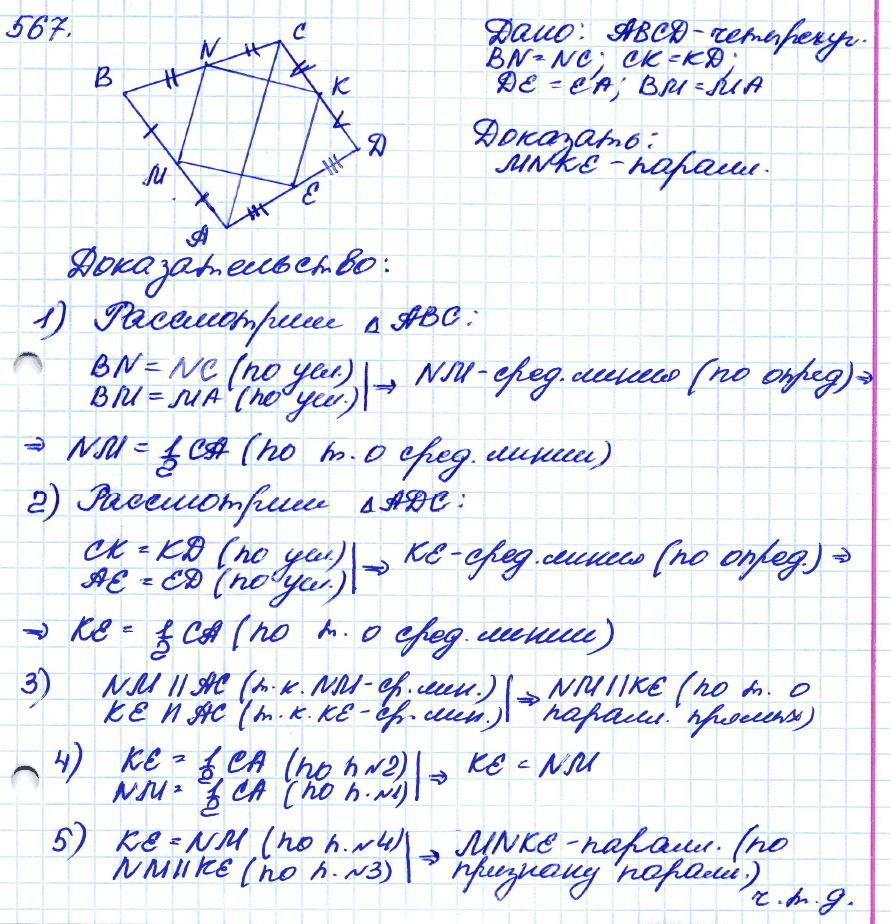 567.
Дано: ABCD - четырехуг.
BN = NC; CK = KD;
DE = EA; BM = MA
Доказать:
MNKE - паралл.
B N C K D E A M
Доказательство:
1) Рассмотрим △ ABC:
BN = NC (по усл.) | ⇒ NM - сред. линия (по опред) ⇒
BM = MA (по усл.)
⇒ NM = 1/2 CA (по т. о сред. линии)
2) Рассмотрим △ADC:
CK = KD (по усл.) | ⇒ KE - сред. линия (по опред.) ⇒
AE = ED (по усл.)
⇒ KE = 1/2 CA (по т. о сред. линии)
3) NM || AC (т.к. NM - ср. лин.) | ⇒ NM || KE (по т. о
KE || AC (т.к. KE - ср. лин.) паралл. прямых)
4) KE = 1/2 CA (по п №2) | ⇒ KE = NM
NM = 1/2 CA (по п. №1)
5) KE = NM (по п. №4) | ⇒ MNKE - паралл. (по
NM || KE (по п. №3) признаку паралл.)
ч. т. д.